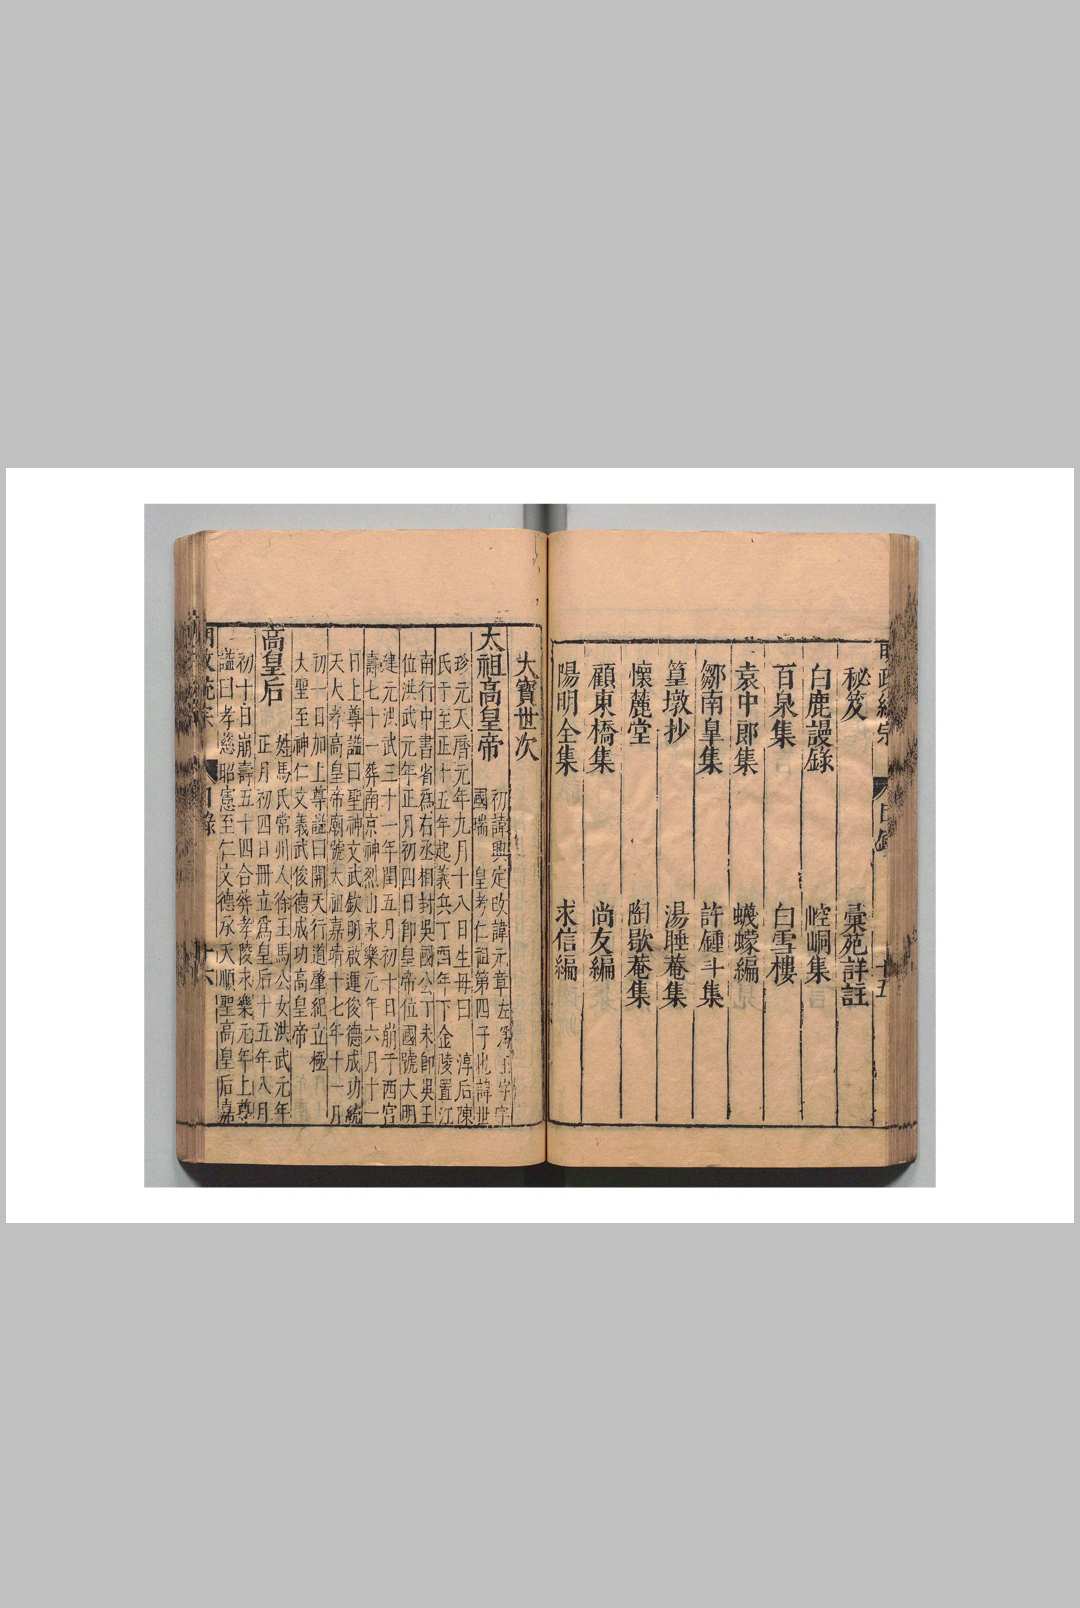 秘笈 彚苑詳註
白鹿謾錄 崆峒集
百泉集 白雪樓
袁中郎集 蠛蠓編
鄒南臯集 許鍾斗集
篁墩抄 湯睡菴集
懷麓堂 陶歇菴集
顧東橋集 尚友編
陽明全集 求信編
大寶世次
太祖高皇帝 初諱興定改諱元章左溤王字字
國瑞 皇考仁祖第四子也諱世
珍元天曆元年九月十八日生母曰 淳后陳
氏于至正十五年起義兵丁酉年下金陵置江
南行中書省爲右丞相封吳國公丁未卽吳王
位洪武元年正月初四日卽皇帝位國號大明
建元洪武三十一年閏五月初十日崩于西宮
壽七十一葬南京神烈山永樂元年六月十一
日上尊謚曰聖神文武欽明啟運俊德成功統
天大孝高皇帝廟號太祖嘉靖十七年十一月
初一日加上尊謚曰開天行道肇紀立極
大聖至神仁文義武俊德成功高皇帝
高皇后 姓馬氏常州人徐王馬公女洪武元年
正月初四日冊立爲皇后十五年八月
初十日崩壽五十四合葬孝陵永樂元年上尊
謚曰孝慈昭憲至仁文德承天順聖高皇后嘉
目錄 十六